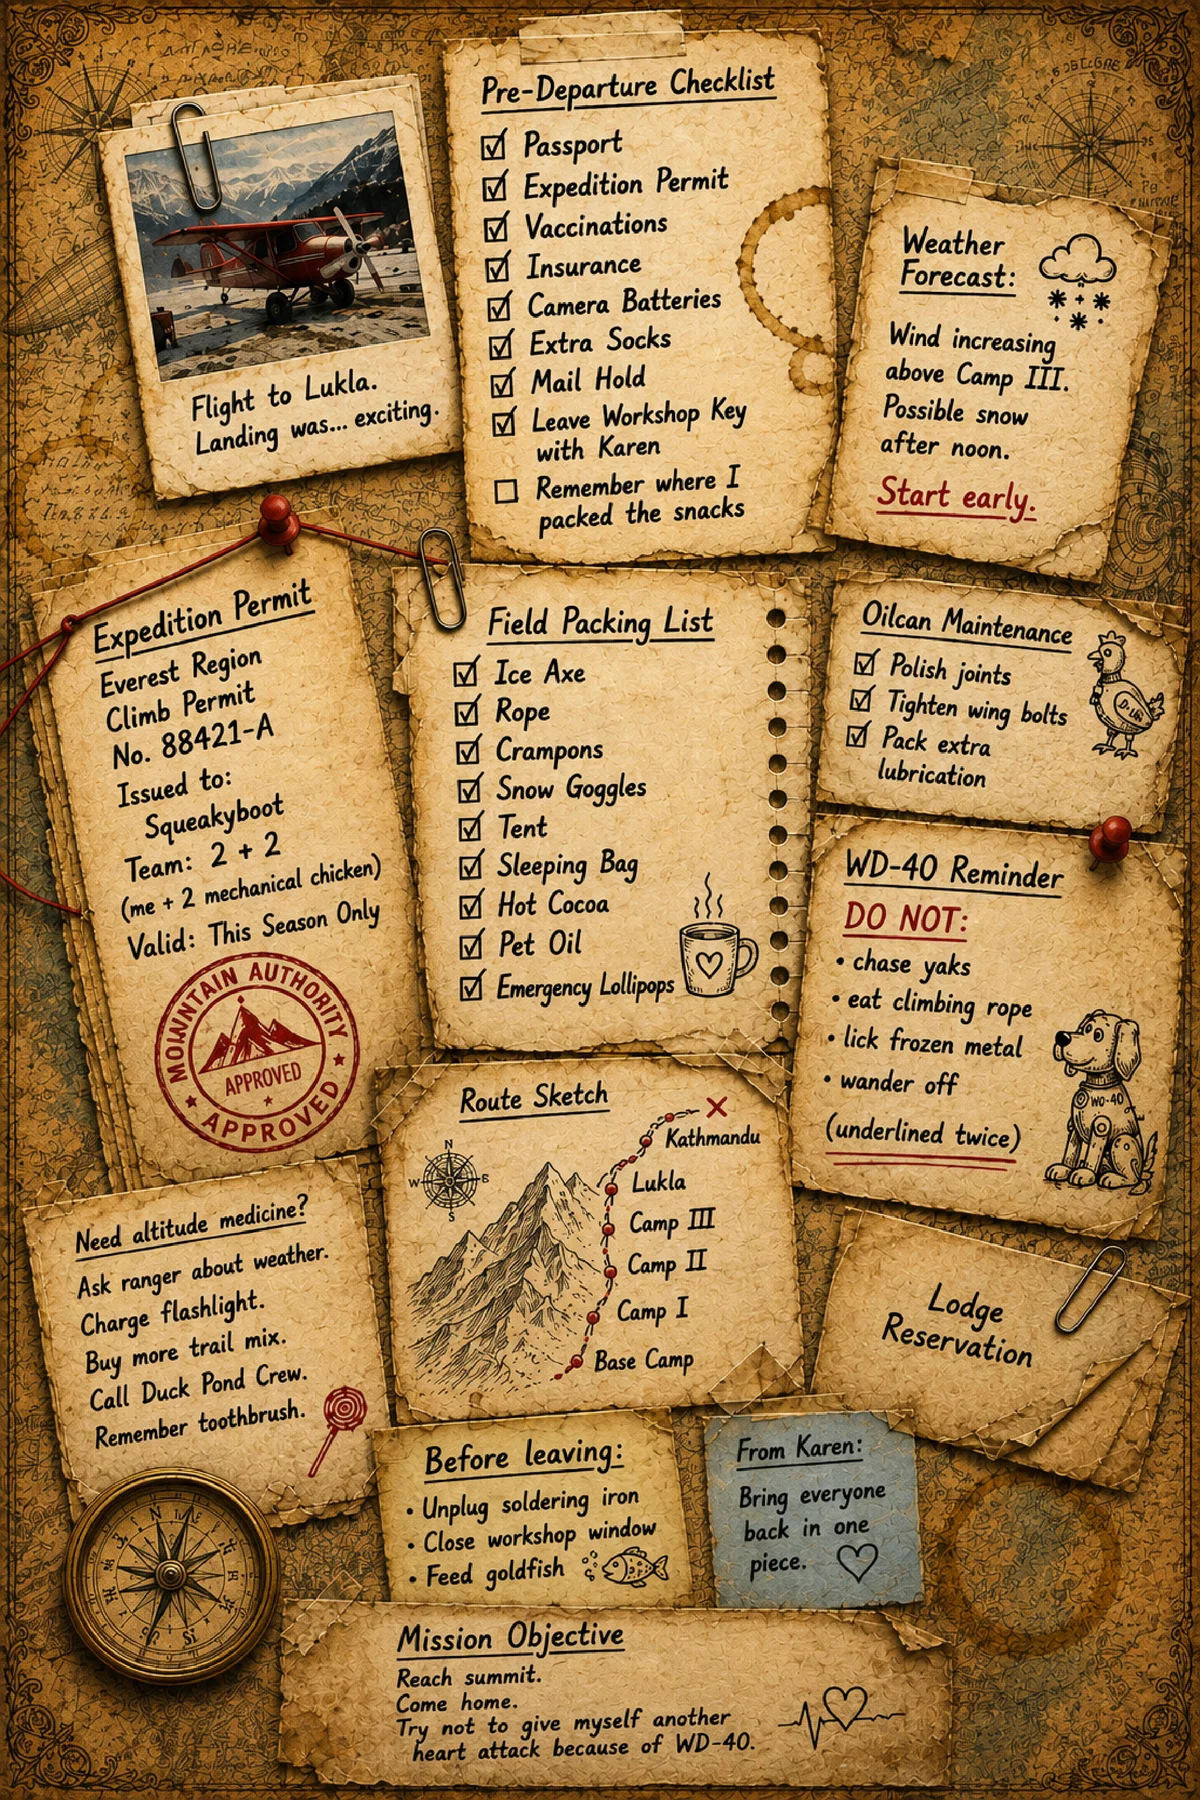 Flight to Lukla.
Landing was... exciting.
Pre-Departure Checklist
Passport
Expedition Permit
Vaccinations
Insurance
Camera Batteries
Extra Socks
Mail Hold
Leave Workshop Key
with Karen
Remember where I
packed the snacks
Weather
Forecast:
Wind increasing
above Camp III.
Possible snow
after noon.
Start early.
Expedition Permit
Everest Region
Climb Permit
No. 88421-A
Issued to:
Squeakyboot
Team: 2 + 2
(me + 2 mechanical chicken)
Valid: This Season Only
MOUNTAIN AUTHORITY
APPROVED
APPROVED
Field Packing List
Ice Axe
Rope
Crampons
Snow Goggles
Tent
Sleeping Bag
Hot Cocoa
Pet Oil
Emergency Lollipops
Oilcan Maintenance
Polish joints
Tighten wing bolts
Pack extra
lubrication
WD-40 Reminder
DO NOT:
• chase yaks
• eat climbing rope
• lick frozen metal
• wander off
(underlined twice)
WD-40
Route Sketch
N
W E
S
Kathmandu
Lukla
Camp III
Camp II
Camp I
Base Camp
Need altitude medicine?
Ask ranger about weather.
Charge flashlight.
Buy more trail mix.
Call Duck Pond Crew.
Remember toothbrush.
Lodge
Reservation
Before leaving:
• Unplug soldering iron
• Close workshop window
• Feed goldfish
From Karen:
Bring everyone
back in one
piece.
Mission Objective
Reach summit.
Come home.
Try not to give myself another
heart attack because of WD-40.